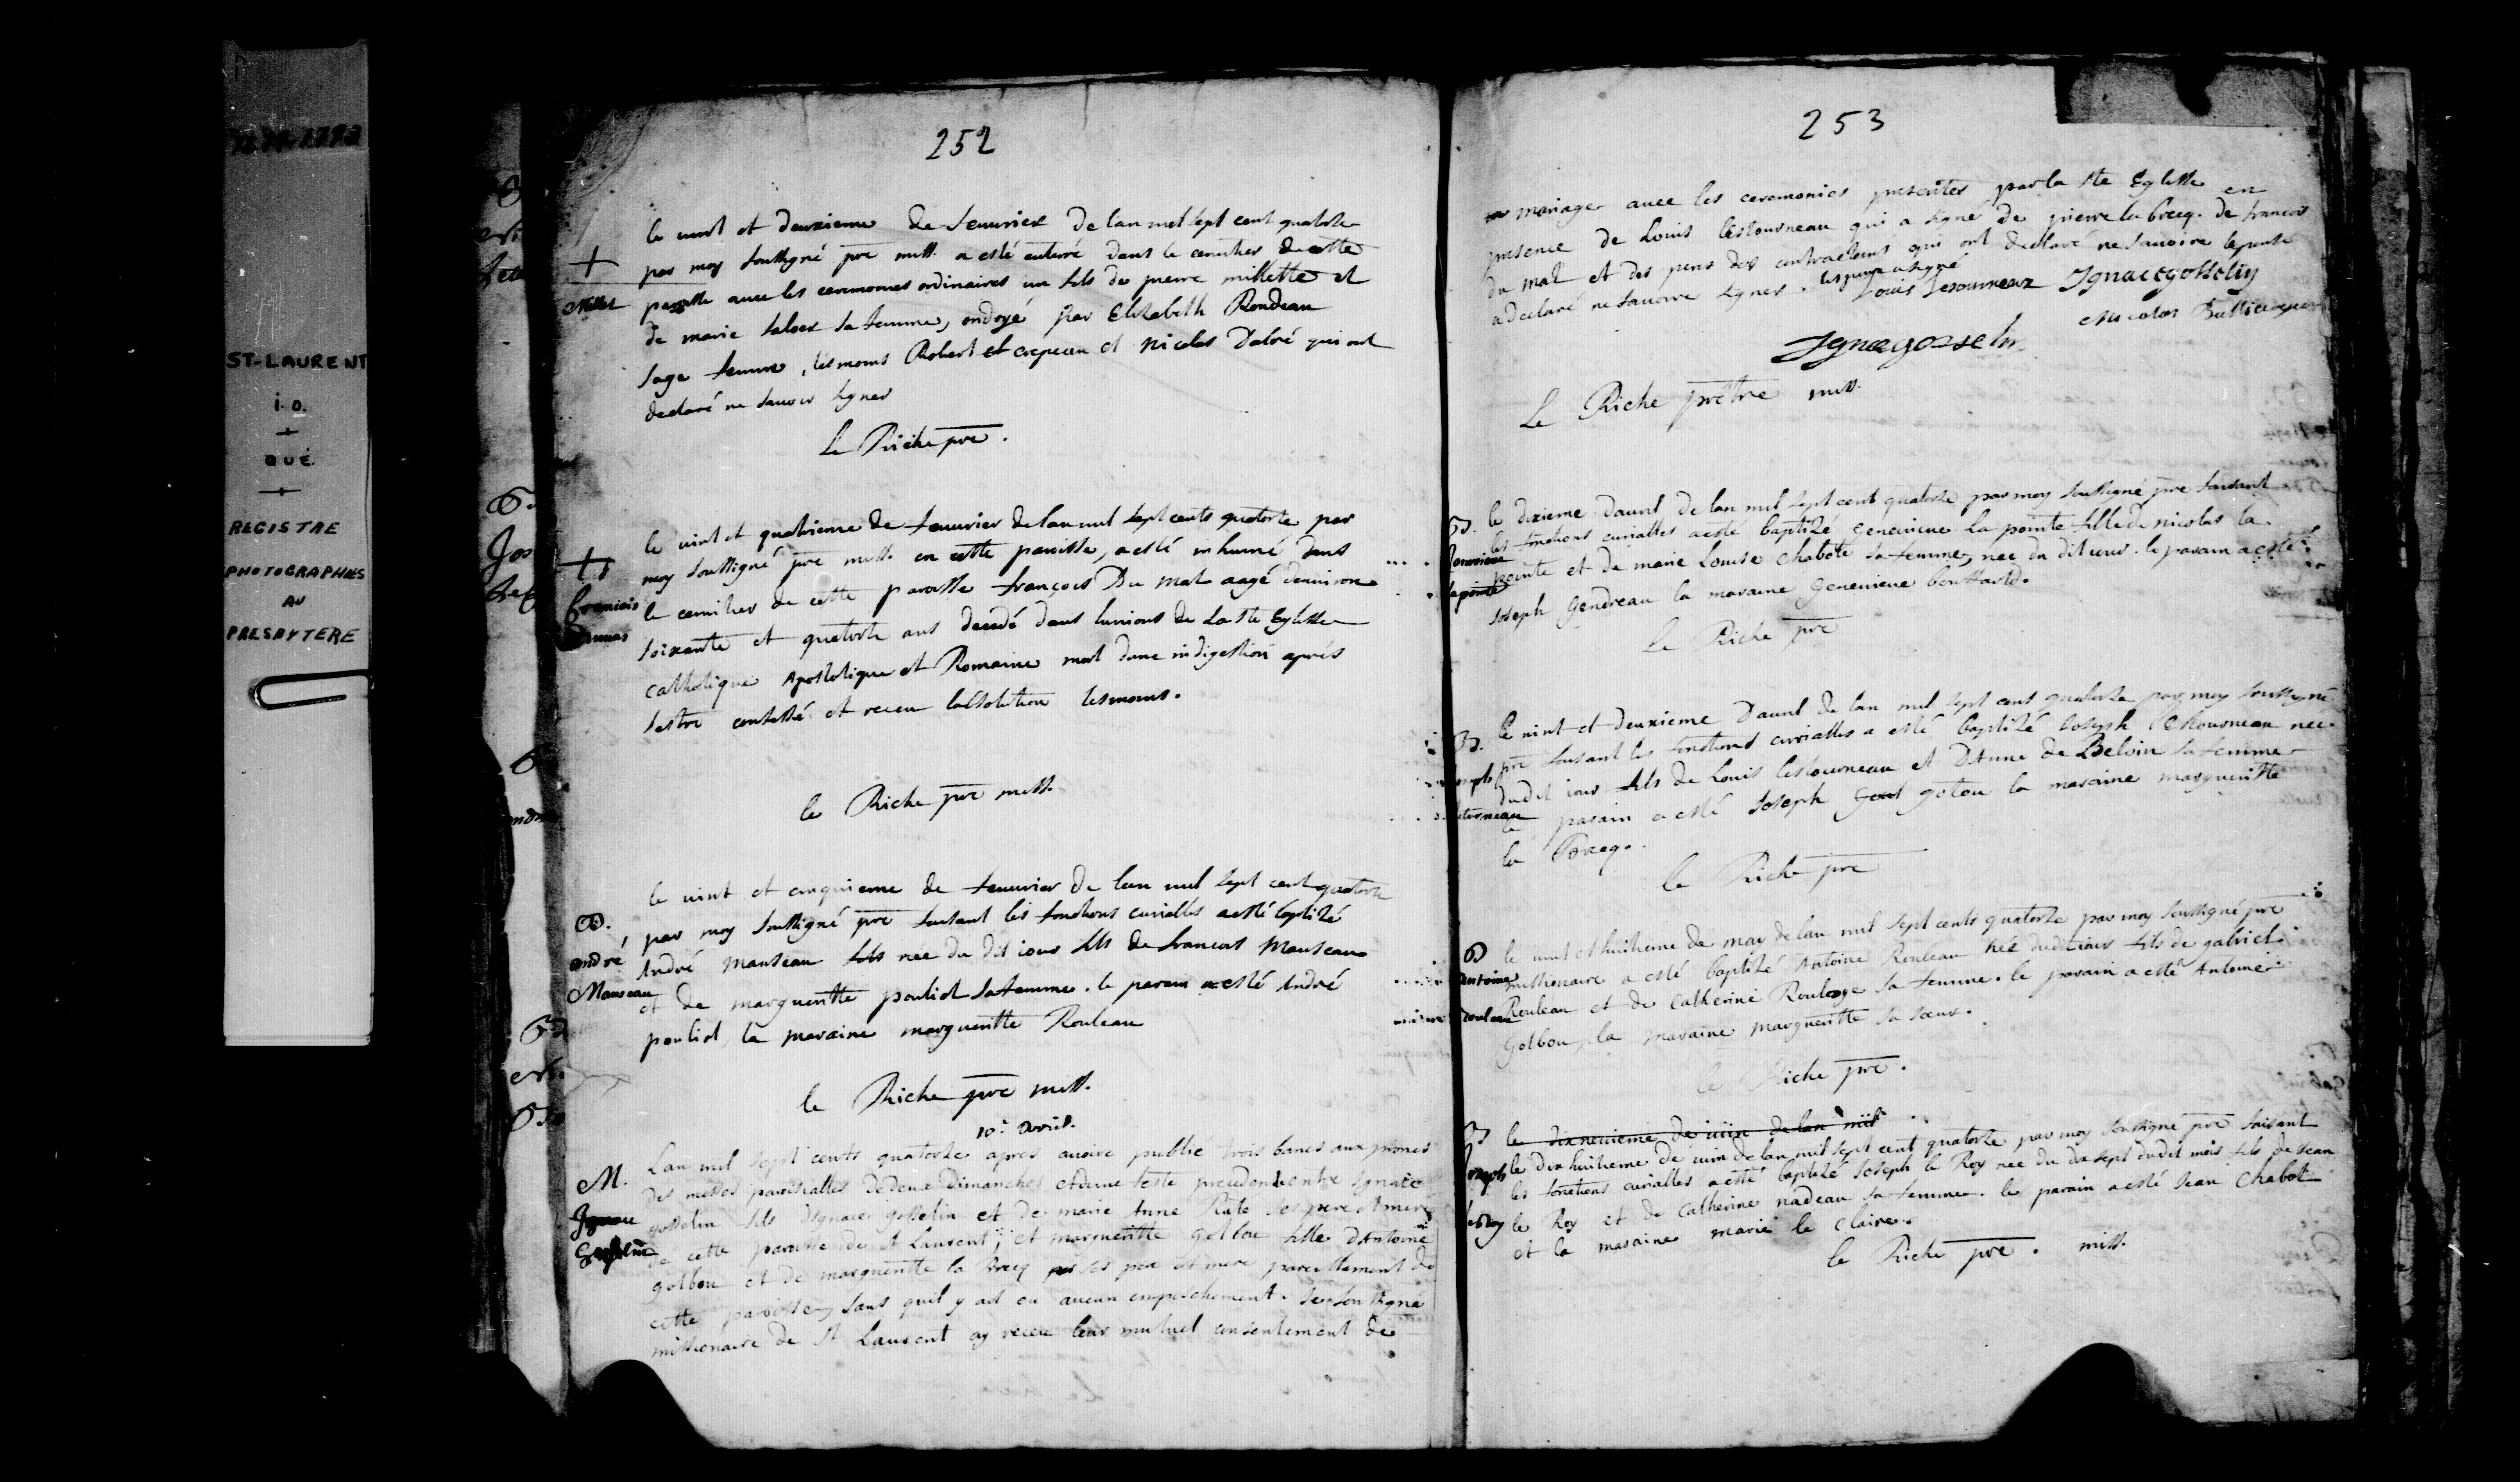 ST-LAURENT
i.o.
QUÉ.
REGISTRE
PHOTOGRAPHIES
AU
PRESBYTERE
252
le vint et deuxieme de feuvrier de lan mil sept cent quatorze
par moy soussigné pre miss. a esté enterré dans le cemitier de cette
paroisse avec les ceremonies ordinaires un fils de pierre millette et
de marie saloer sa femme, ondoyé par Elizabeth Rondeau
sage femme, tesmoins Robert et crepeau et nicolas Dalré qui ont
declaré ne sauoir signer
le Riche pre.
+
Millet
le vint et quatrieme de feuurier de lan mil sept cents quatorze par
moy soussigné pre miss. en cette paroisse, a esté inhumé dans
le cemitier de cette paroisse françois Du mal aagé denuiron
soixante et quatorze ans decedé dans lunion de la Ste Eglisse
catholique Apostolique et Romaine mort dune indigestion aprés
sestre confessé et receu labsolution tesmoins.
le Riche pre miss.
+
francois
Dumas
le vint et cinquieme de feuurier de lan mil sept cent quatorze
par moy soussigné pre faisant les fonctions curialles a esté baptizé
André Manseau fils née du dit iour fils de francois Manseau
et de margueritte pouliot sa femme. le parain a esté André
pouliot, la maraine marguerite Rouleau
le Riche pre miss.
B.
andré
Manseau
10e avril.
Lan mil sept cents quatorze apres auoire publié trois bancs aux prones
des messes paroissialles de deux dimanches et dune feste precedente entre Ignace
gosselin fils dIgnace gosselin et de marie Anne Raté ses pere et mere
de cette paroisse de st Laurent; et marguerite golbou fille dAntoine
golbou et de marguerite la Brecq ses pere et mere pareillement de
cette paroisse, sans quil y ait eu aucun empeschement. Je soussigné
missionaire de St Laurent ay receu leur mutuel consentement de
M.
Ignace
Gosselin
253
mariage auec les ceremonies prescrites par la Ste Eglisse en
presence de Louis lestourneau qui a signé de pierre la brecq. de francois
du mal et des peres des contractans qui ont declaré ne sauoire lepouse
a declaré ne sauoire signer. lespoux a signé
Louis Lesourneux Ignace gosseliy
Nicolas
Ignace gosselin
Le Riche prêtre miss.
B.
Genevieve
lapointe
le dixieme dauril de lan mil sept cent quatorze par moy soussigné pre faisant
les fonctions curialles a esté baptizé Geneuieue la pointe fille de nicolas la
pointe et de marie Louise chabote sa femme, nee du dit iour. le parain a esté
Joseph Gendreau la maraine Geneuieue bouffard.
le Riche pre
B.
Joseph
letourneau
le vint et deuxieme Dauril de lan mil sept cent quatorze par moy soussigné
pre faisant les fonctions curialles a esté baptizé Joseph lestourneau nee
dudit iour fils de Louis lestourneau et DAnne de Beloin sa femme
le parain a esté Joseph gotou la maraine marguerite
la Brecq.
le Riche pre
B
Antoine
Rouleau
le vint et huitieme de may de lan mil sept cents quatorze par moy soussigné pre
missionaire a esté baptizé Antoine Rouleau née dudit iour fils de gabriel
Rouleau et de catherine Roulage sa femme. le parain a esté Antoine
Golbou, la maraine marguerite sa soeur.
le Riche pre.
B
Joseph
le Roy
le dixneuieme de iuin de lan mil
le dix huitieme de iuin de lan mil sept cent quatorze par moy soussigné pre faisant
les fonctions curialles a esté baptizé Joseph le Roy nee du dix sept dudit mois fils de Jean
le Roy et de catherine nadeau sa femme. le parain a esté Jean Chabot
et la maraine marie le claire.
le Riche pre. miss.